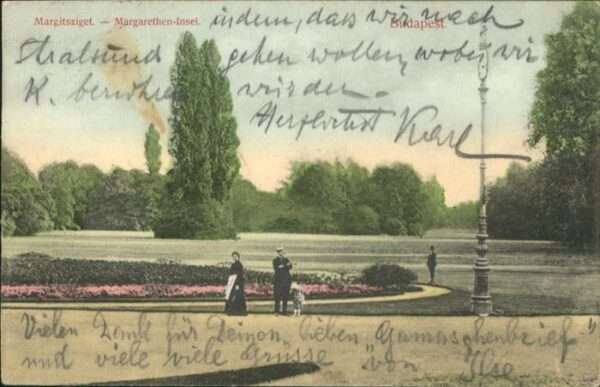 Margitsziget. — Margarethen-Insel.
Budapest
indem, dass wir nach
Stralsund gehen wollen, wobei wir
K. berühren würden.
Herzlichst Karl
Vielen Dank für Deinen lieben "Gamaschenbrief"
und viele viele Grüsse von Ilse